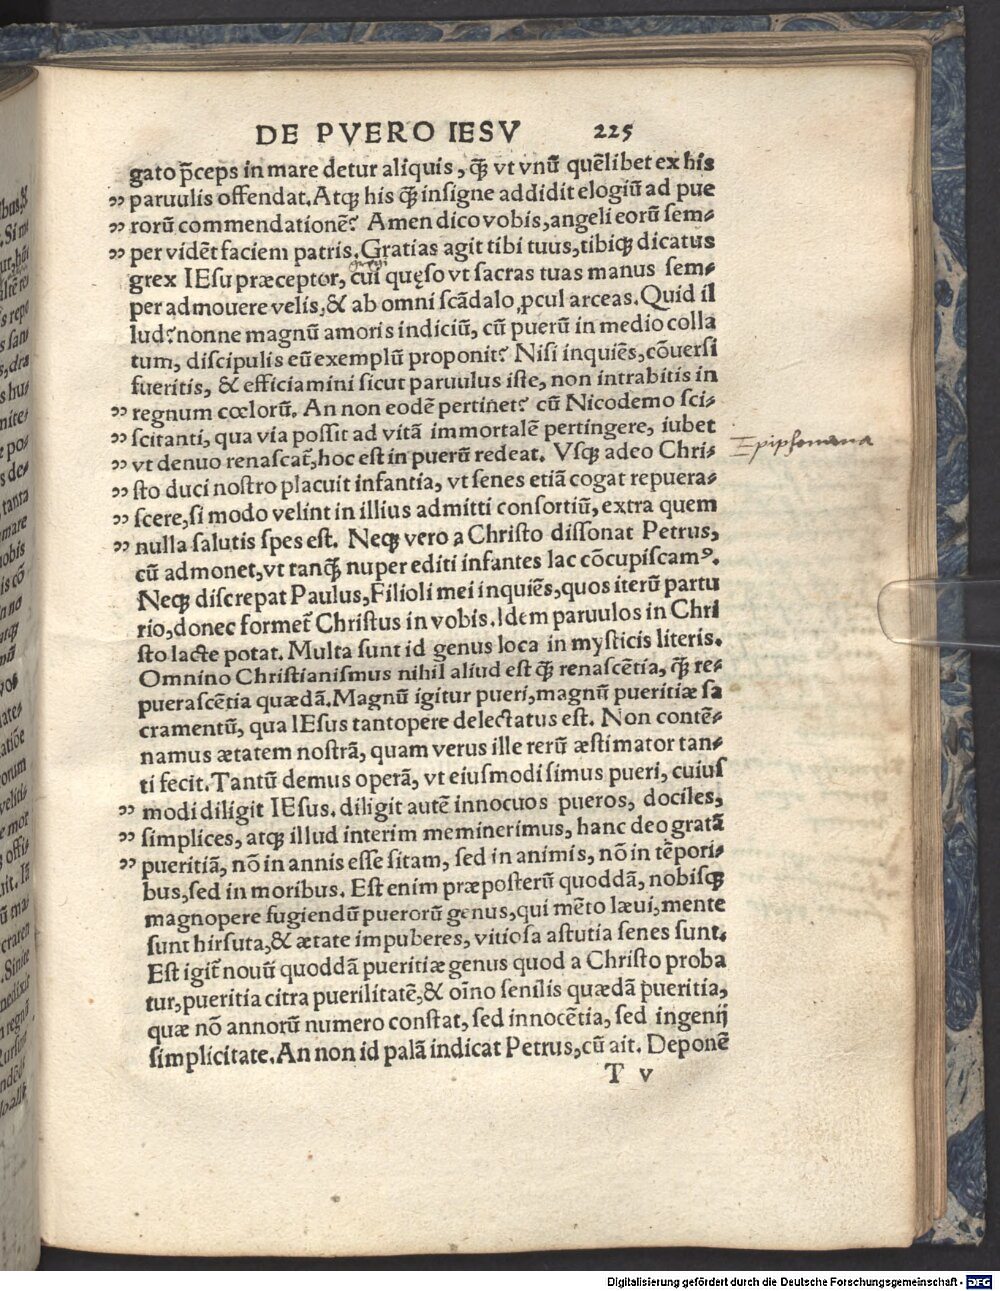 DE PVERO IESV 225
gato p̃ceps in mare detur aliquis, q̃ꝫ vt vnũ quẽlibet ex his
„ paruulis offendat. Atqꝫ his q̃ꝫ insigne addidit elogiũ ad pue
„ rorũ commendationẽ? Amen dico vobis, angeli eorũ sem⸗
„ per vidẽt faciem patris. Gratias agit tibi tuus, tibiqꝫ dicatus
grex IEsu præceptor, cui quęso vt sacras tuas manus sem⸗
per admouere velis, & ab omni scãdalo ꝓcul arceas. Quid il
lud? nonne magnũ amoris indiciũ, cũ puerũ in medio colla
tum, discipulis eũ exemplũ proponit? Nisi inquiẽs, cõuersi
fueritis, & efficiamini sicut paruulus iste, non intrabitis in
„ regnum cœlorũ. An non eodẽ pertinet? cũ Nicodemo sci⸗
„ scitanti, qua via possit ad vitã immortalẽ pertingere, iubet
„ vt denuo renascat̃, hoc est in puerũ redeat. Vsqꝫ adeo Chri⸗
„ sto duci nostro placuit infantia, vt senes etiã cogat repuera⸗
„ scere, si modo velint in illius admitti consortiũ, extra quem
„ nulla salutis spes est. Neqꝫ vero a Christo dissonat Petrus,
cũ admonet, vt tanq̃ꝫ nuper editi infantes lac cõcupiscamꝰ.
Neqꝫ discrepat Paulus, Filioli mei inquiẽs, quos iterũ partu
rio, donec formet̃ Christus in vobis. Idem paruulos in Chri
sto lacte potat. Multa sunt id genus loca in mysticis literis.
Omnino Christianismus nihil aliud est q̃ꝫ renascẽtia, q̃ꝫ re⸗
puerascẽtia quædã. Magnũ igitur pueri, magnũ pueritiæ sa
cramentũ, qua IEsus tantopere delectatus est. Non contẽ⸗
namus ætatem nostrã, quam verus ille rerũ æstimator tan⸗
ti fecit. Tantũ demus operã, vt eiusmodi simus pueri, cuius
„ modi diligit IEsus. diligit autẽ innocuos pueros, dociles,
„ simplices, atqꝫ illud interim meminerimus, hanc deo gratã
„ pueritiã, nõ in annis esse sitam, sed in animis, nõ in tẽpori⸗
bus, sed in moribus. Est enim præposterũ quoddã, nobisqꝫ
magnopere fugiendũ puerorũ genus, qui mẽto læui, mente
sunt hirsuta, & ætate impuberes, vitiosa astutia senes sunt.
Est igit̃ nouũ quoddã pueritiæ genus quod a Christo proba
tur, pueritia citra puerilitatẽ, & oĩno senilis quædã pueritia,
quæ nõ annorũ numero constat, sed innocẽtia, sed ingenij
simplicitate. An non id palã indicat Petrus, cũ ait. Deponẽ
T v
Epiphonema
Digitalisierung gefördert durch die Deutsche Forschungsgemeinschaft - DFG